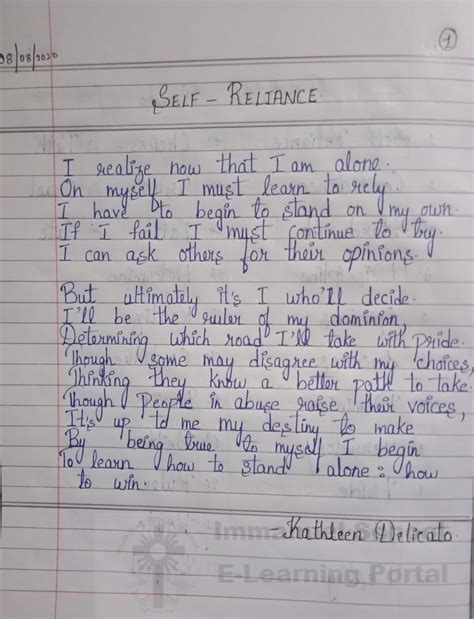 1
08/08/2020
SELF - RELIANCE
I realize now that I am alone.
On myself I must learn to rely.
I have to begin to stand on my own.
If I fail I must continue to try.
I can ask others for their opinions.
But ultimately it's I who'll decide.
I'll be the ruler of my dominion,
Determining which road I'll take with Pride.
Though some may disagree with my choices,
Thinking they know a better path to take.
Though People in abuse raise their voices,
It's up to me my destiny to make
By being true to myself I begin
To learn how to stand alone: how
to win.
- Kathleen Delicato.
E-Learning Portal